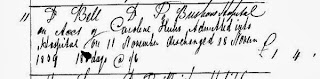 11 Dr Bell D P Brisbane Hospital
on acct of Caroline Ennis admitted into
Hospital on 11 November discharged 18 Novem
1859 days @ 1/6 £ 1 4